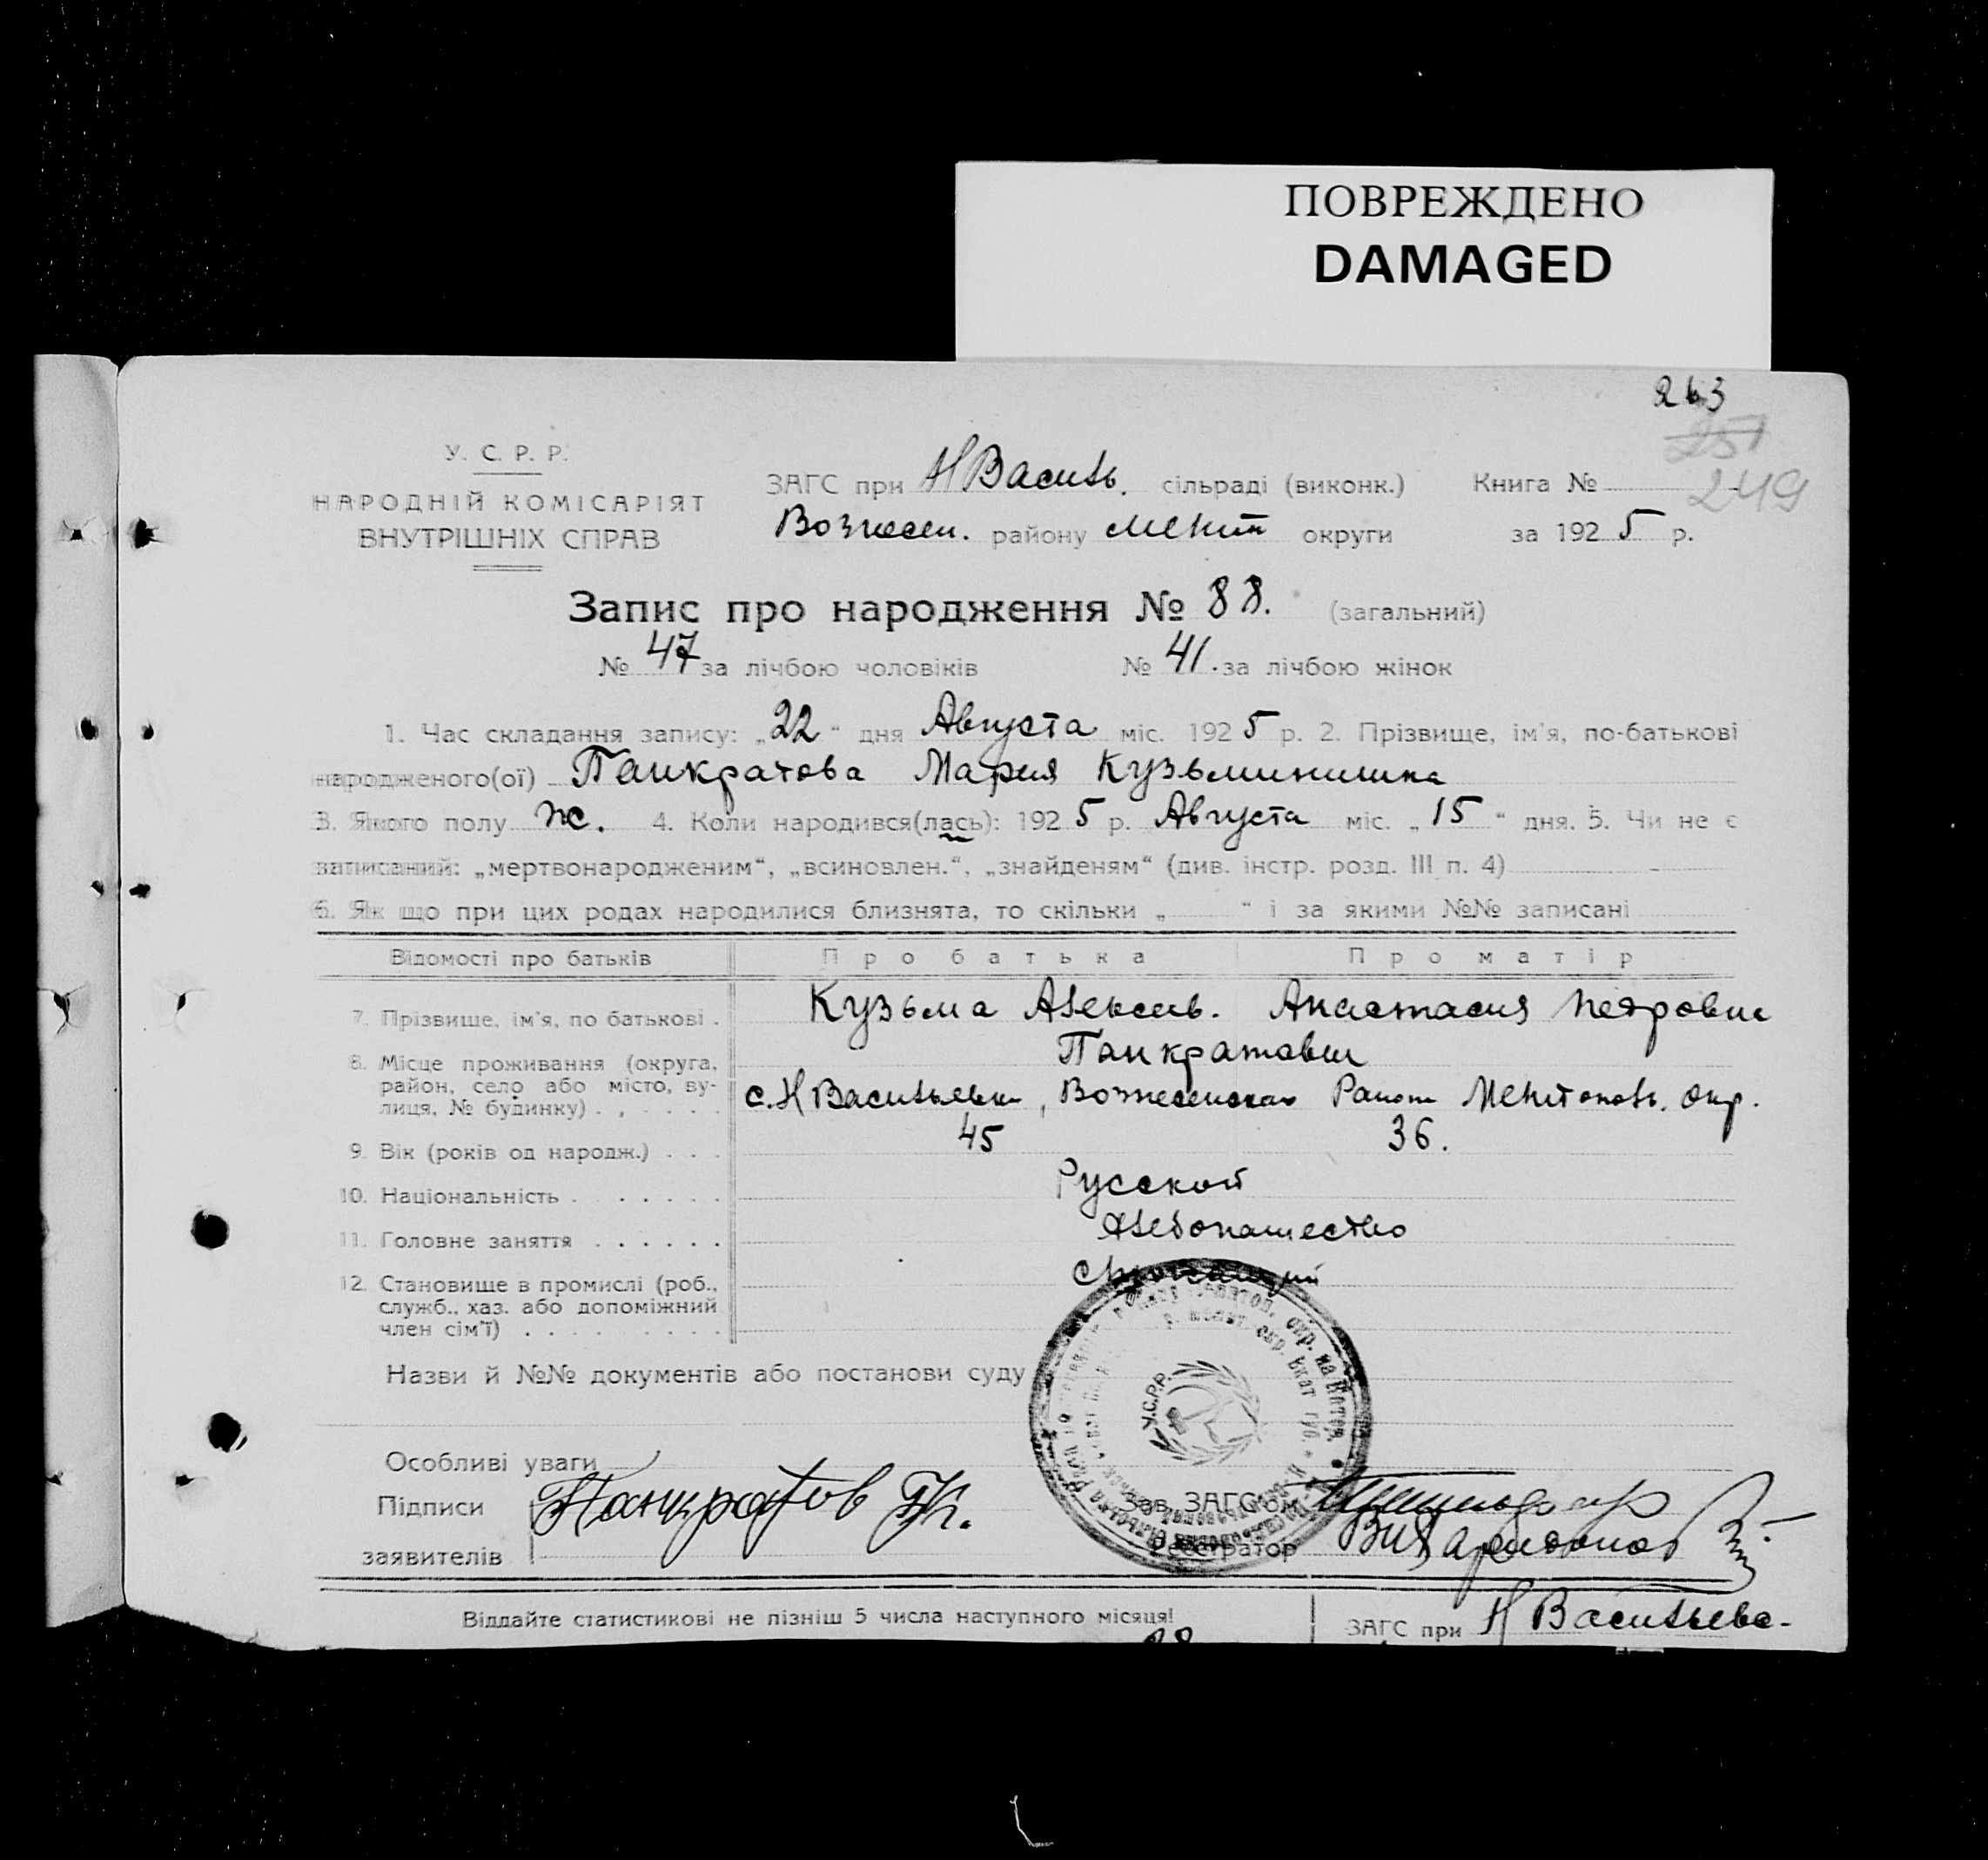 ПОВРЕЖДЕНО
DAMAGED
263
251
249
У. С. Р. Р.
НАРОДНІЙ КОМІСАРІЯТ
ВНУТРІШНІХ СПРАВ
ЗАГС при НВасиль. сільраді (виконк.) Книга №
Вознесен. району Мелит округи за 1925 р.
Запис про народження № 88. (загальний)
№ 47 за лічбою чоловіків № 41. за лічбою жінок
1. Час складання запису: „22“ дня Августа міс. 1925 р. 2. Прізвище, ім'я, по-батькові
народженого(ої) Панкратова Мария Кузьминишна
3. Якого полу ж. 4. Коли народився(лась): 1925 р. Августа міс. „15“ дня. 5. Чи не є
записаний: „мертвонародженим“, „всиновлен.“, „знайденям“ (див. інстр. розд. III п. 4) -
6. Як що при цих родах народилися близнята, то скільки „ “ і за якими №№ записані
Відомості про батьків Про батька Про матір
7. Прізвище, ім'я, по батькові . Кузьма Алексеев. Анастасия Петровна
Панкратовы
8. Місце проживання (округа, район, село або місто, вулиця, № будинку) . . с. НВасильевка, Вознесенскаго Района Мелитополь. окр.
9. Вік (років од народж.) . . . 45 36.
10. Національність . . . . . . . Русской
11. Головне заняття . . . . . . Хлебопашество
12. Становище в промислі (роб.,
служб., хаз. або допоміжний
член сім'ї) . . . . . . . . .
Назви й №№ документів або постанови суду
У.С.Р.Р.
Особливі уваги
Підписи Панкратов К.
заявителів
Зав. ЗАГС'ом
Реєстратор
Віддайте статистикові не пізніш 5 числа наступного місяця! ЗАГС при НВасильева-